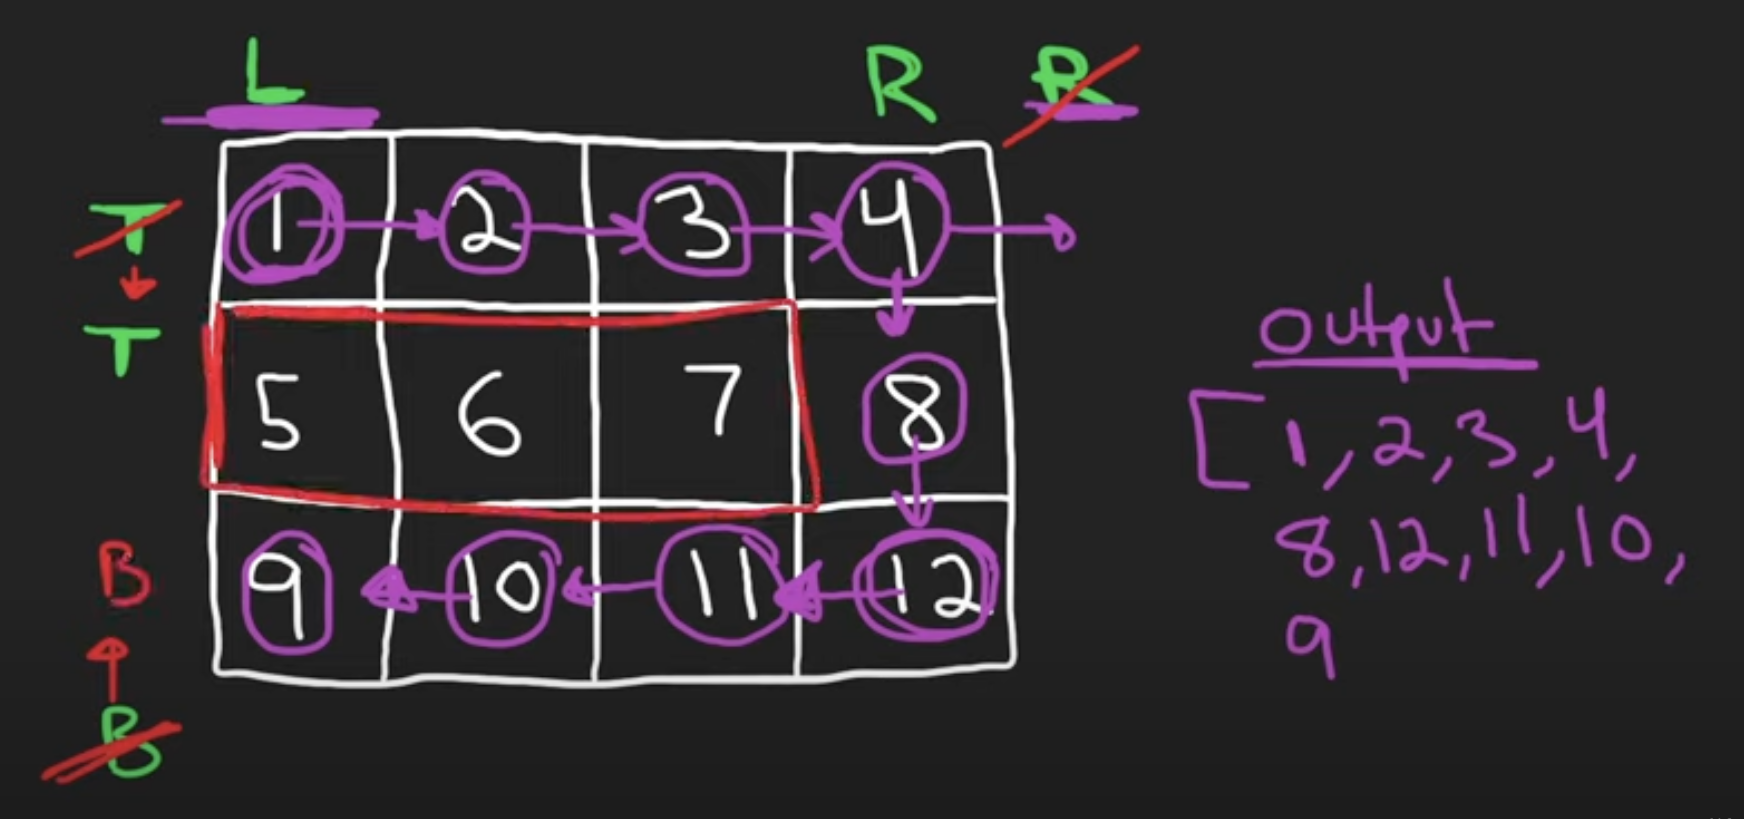 L R R
T
1 2 3 4
T
5 6 7 8
B
9 10 11 12
B
output
[1, 2, 3, 4,
8, 12, 11, 10,
9